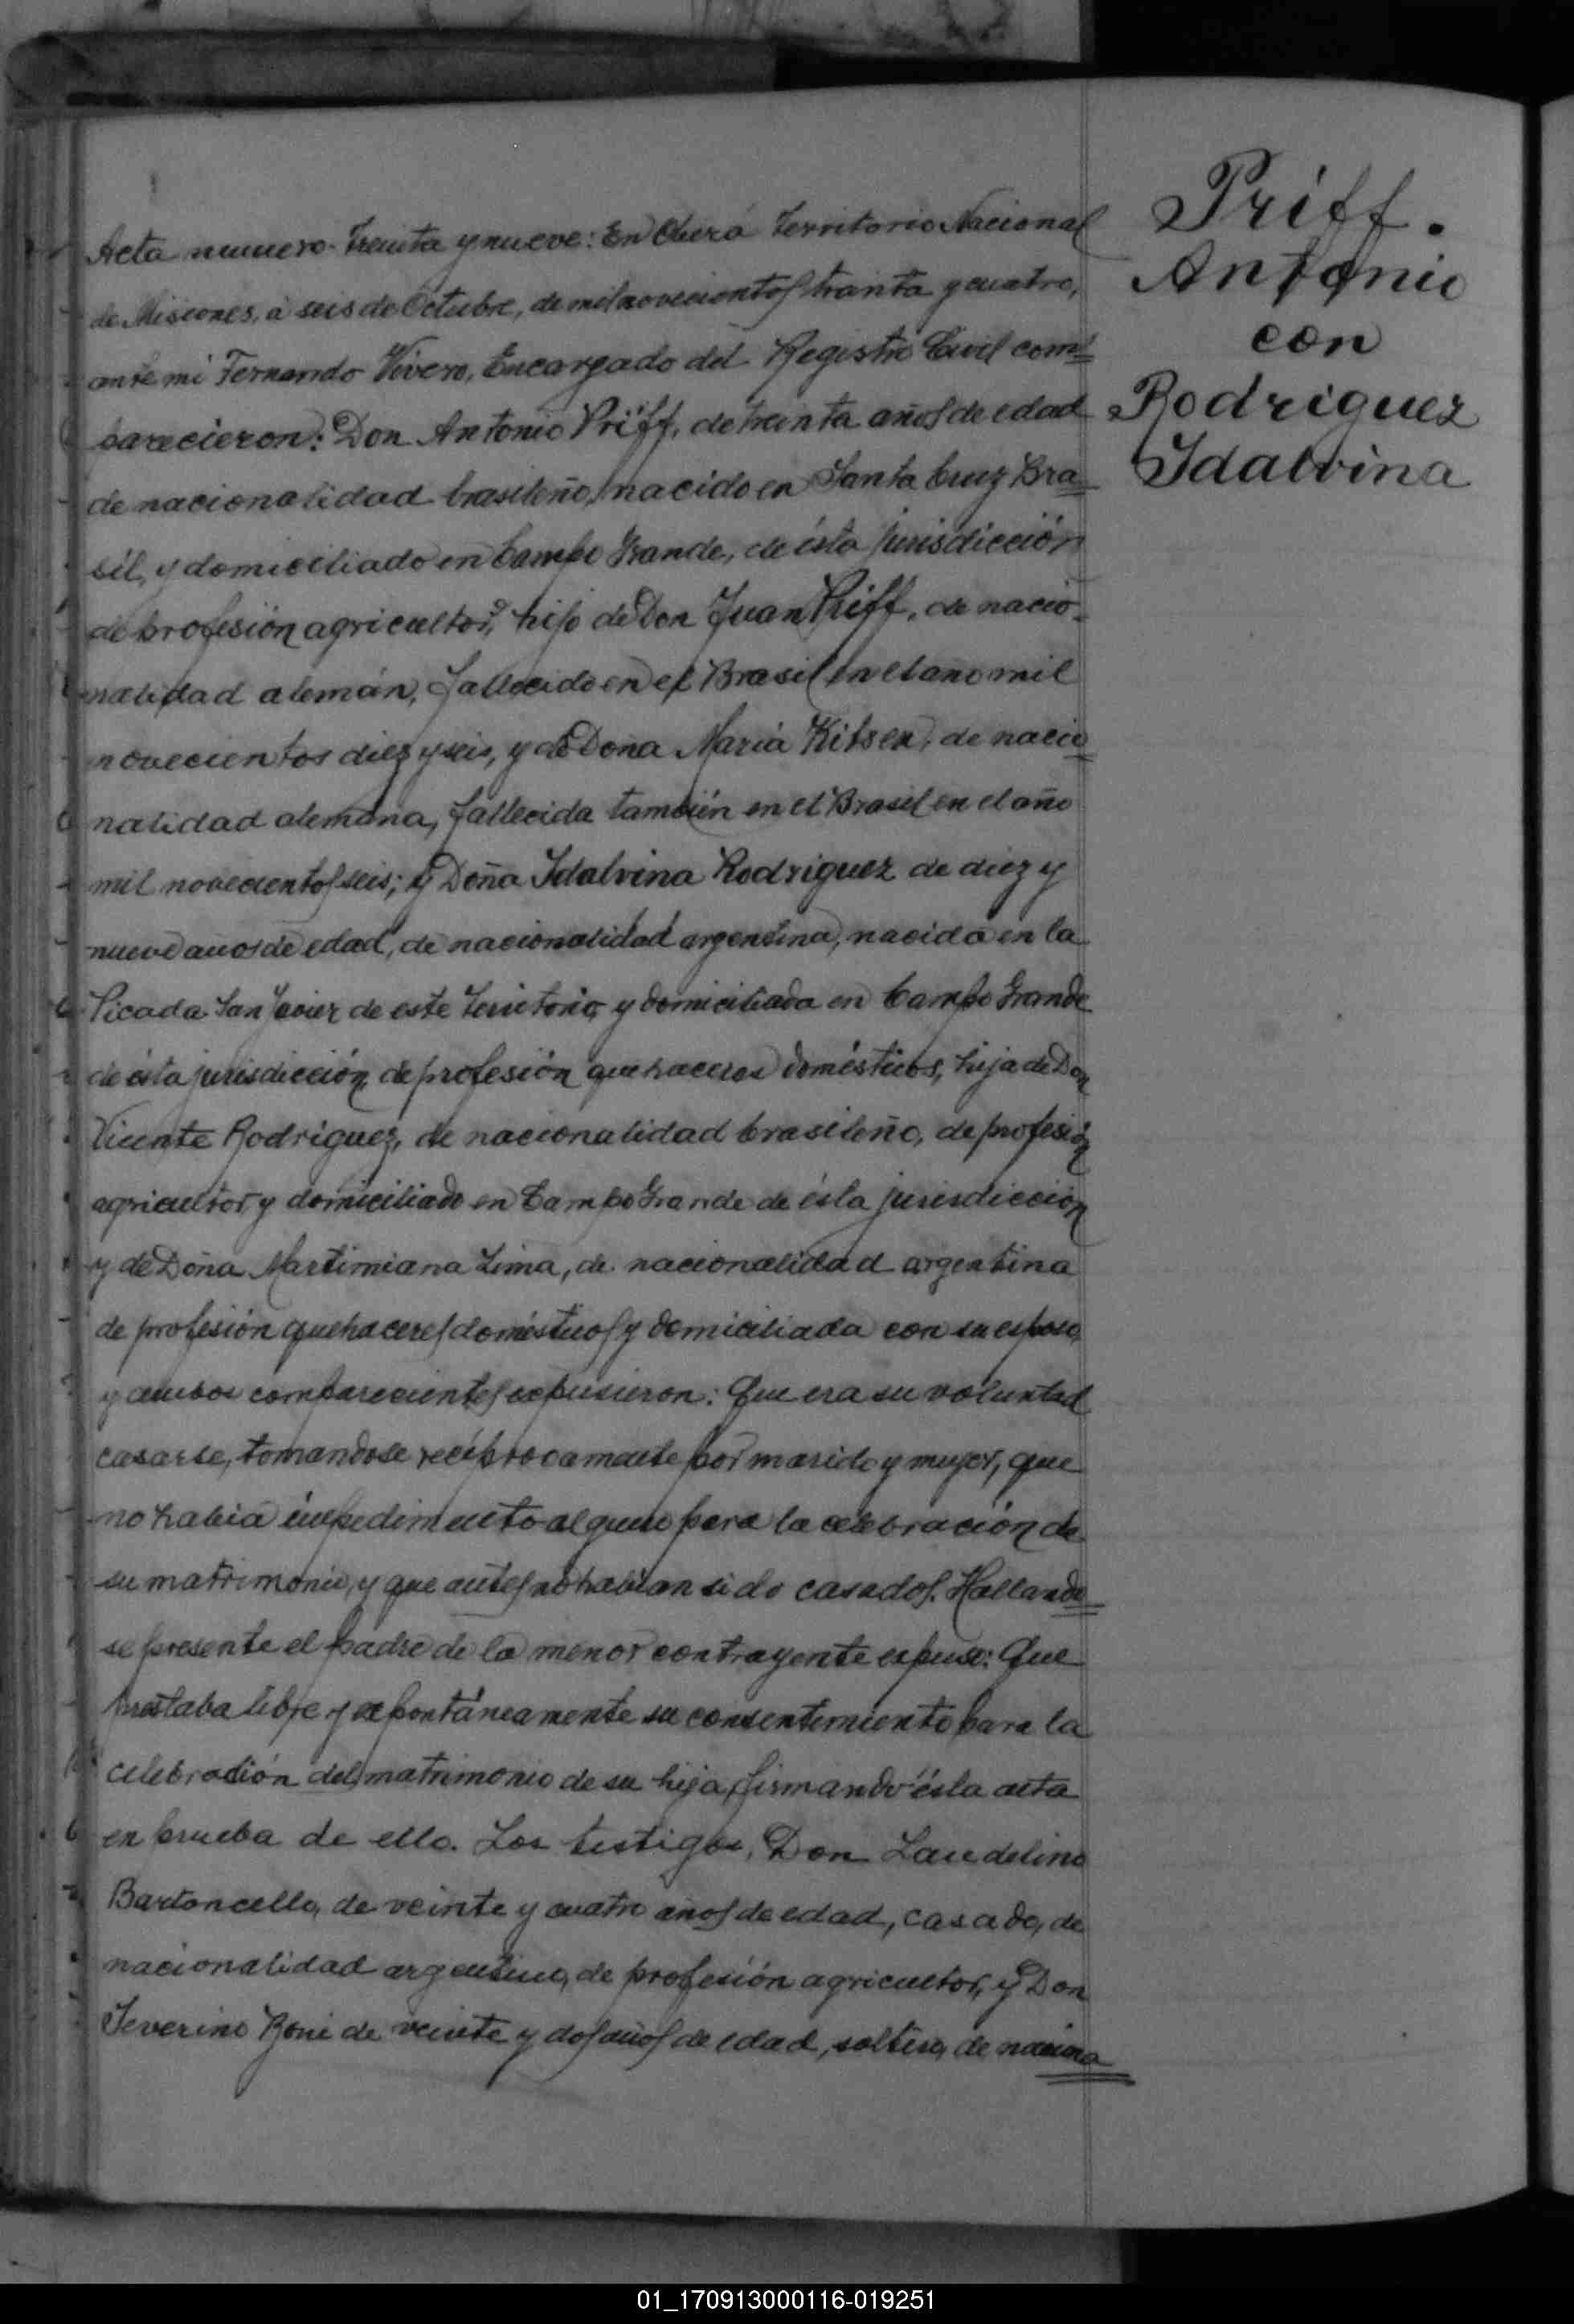 Acta numero Treinta y nueve: En Oberá Territorio Nacional
de Misiones, á seis de Octubre, de mil novecientos trainta y cuatro,
ante mi Fernando Vivero, Encargado del Registro Civil com=
parecieron: Don Antonio Priff, de treinta años de edad
de nacionalidad brasileño, nacido en Santa Cruz Bra=
sil, y domiciliado en Campo Grande, de ésta jurisdicción
de profesión agricultor, hijo de Don Juan Priff, de nacio=
nalidad alemán, fallecido en el Brasil en el año mil
novecientos diez y seis, y de Doña Maria Kitsen, de nacio=
nalidad alemana, fallecida también en el Brasil en el año
mil novecientos seis; y Doña Idalvina Rodriguez de diez y
nueve años de edad, de nacionalidad argentina, nacida en la
Picada San Javier de este Territorio, y domiciliada en Campo Grande
de ésta jurisdicción, de profesión quehaceres domésticos, hija de Don
Vicente Rodriguez, de nacionalidad brasileño, de profesión
agricultor, y domiciliado en Campo Grande de ésta jurisdicción
y de Doña Martimiana Lima, de nacionalidad argentina
de profesión quehaceres domésticos y domiciliada con su esposo,
y ambos comparecientes expusieron: Que era su voluntad
casarse, tomandose recíprocamente por marido y mujer, que
no habia impedimento alguno para la celebración de
su matrimonio, y que antes no habian sido casados. Hallando=
se presente el padre de la menor contrayente espuso: Que
prestaba libre y espontáneamente su consentimiento para la
celebración del matrimonio de su hija, firmando ésta acta
en prueba de ello. Los testigos, Don Laudelino
Bartoncello, de veinte y cuatro años de edad, casado, de
nacionalidad argentino, de profesión agricultor, y Don
Severino Boni de veinte y dos años de edad, soltero, de naciona=
Priff.
Antonio
con
Rodriguez
Idalvina
01_170913000116-019251